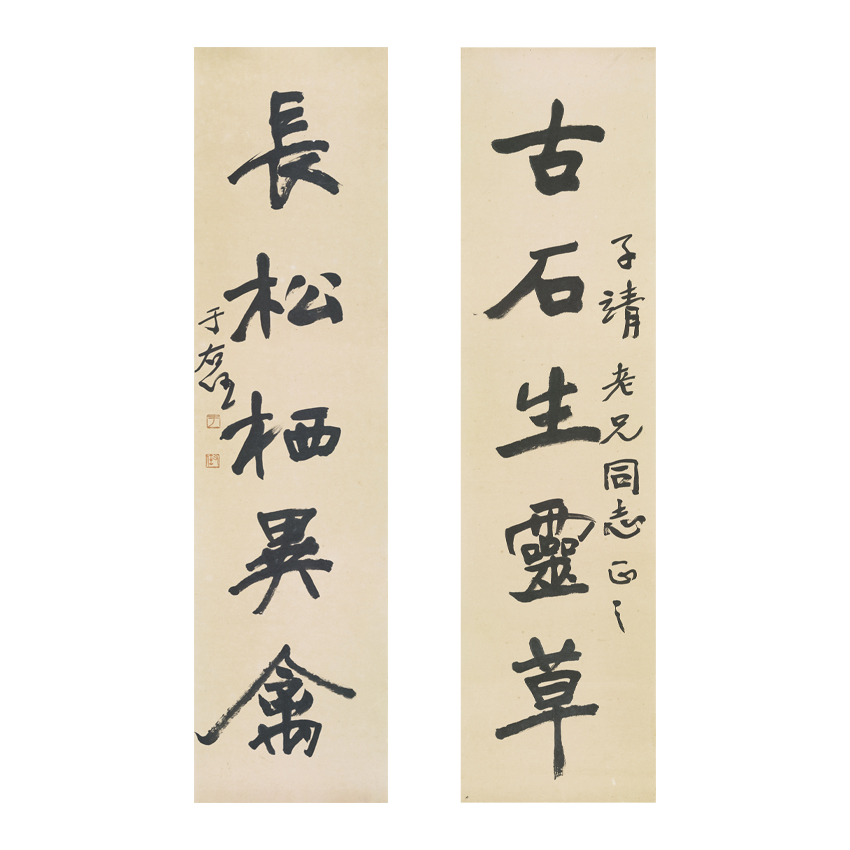 古石生靈草
子靖老兄同志正之
長松栖異禽
于右任